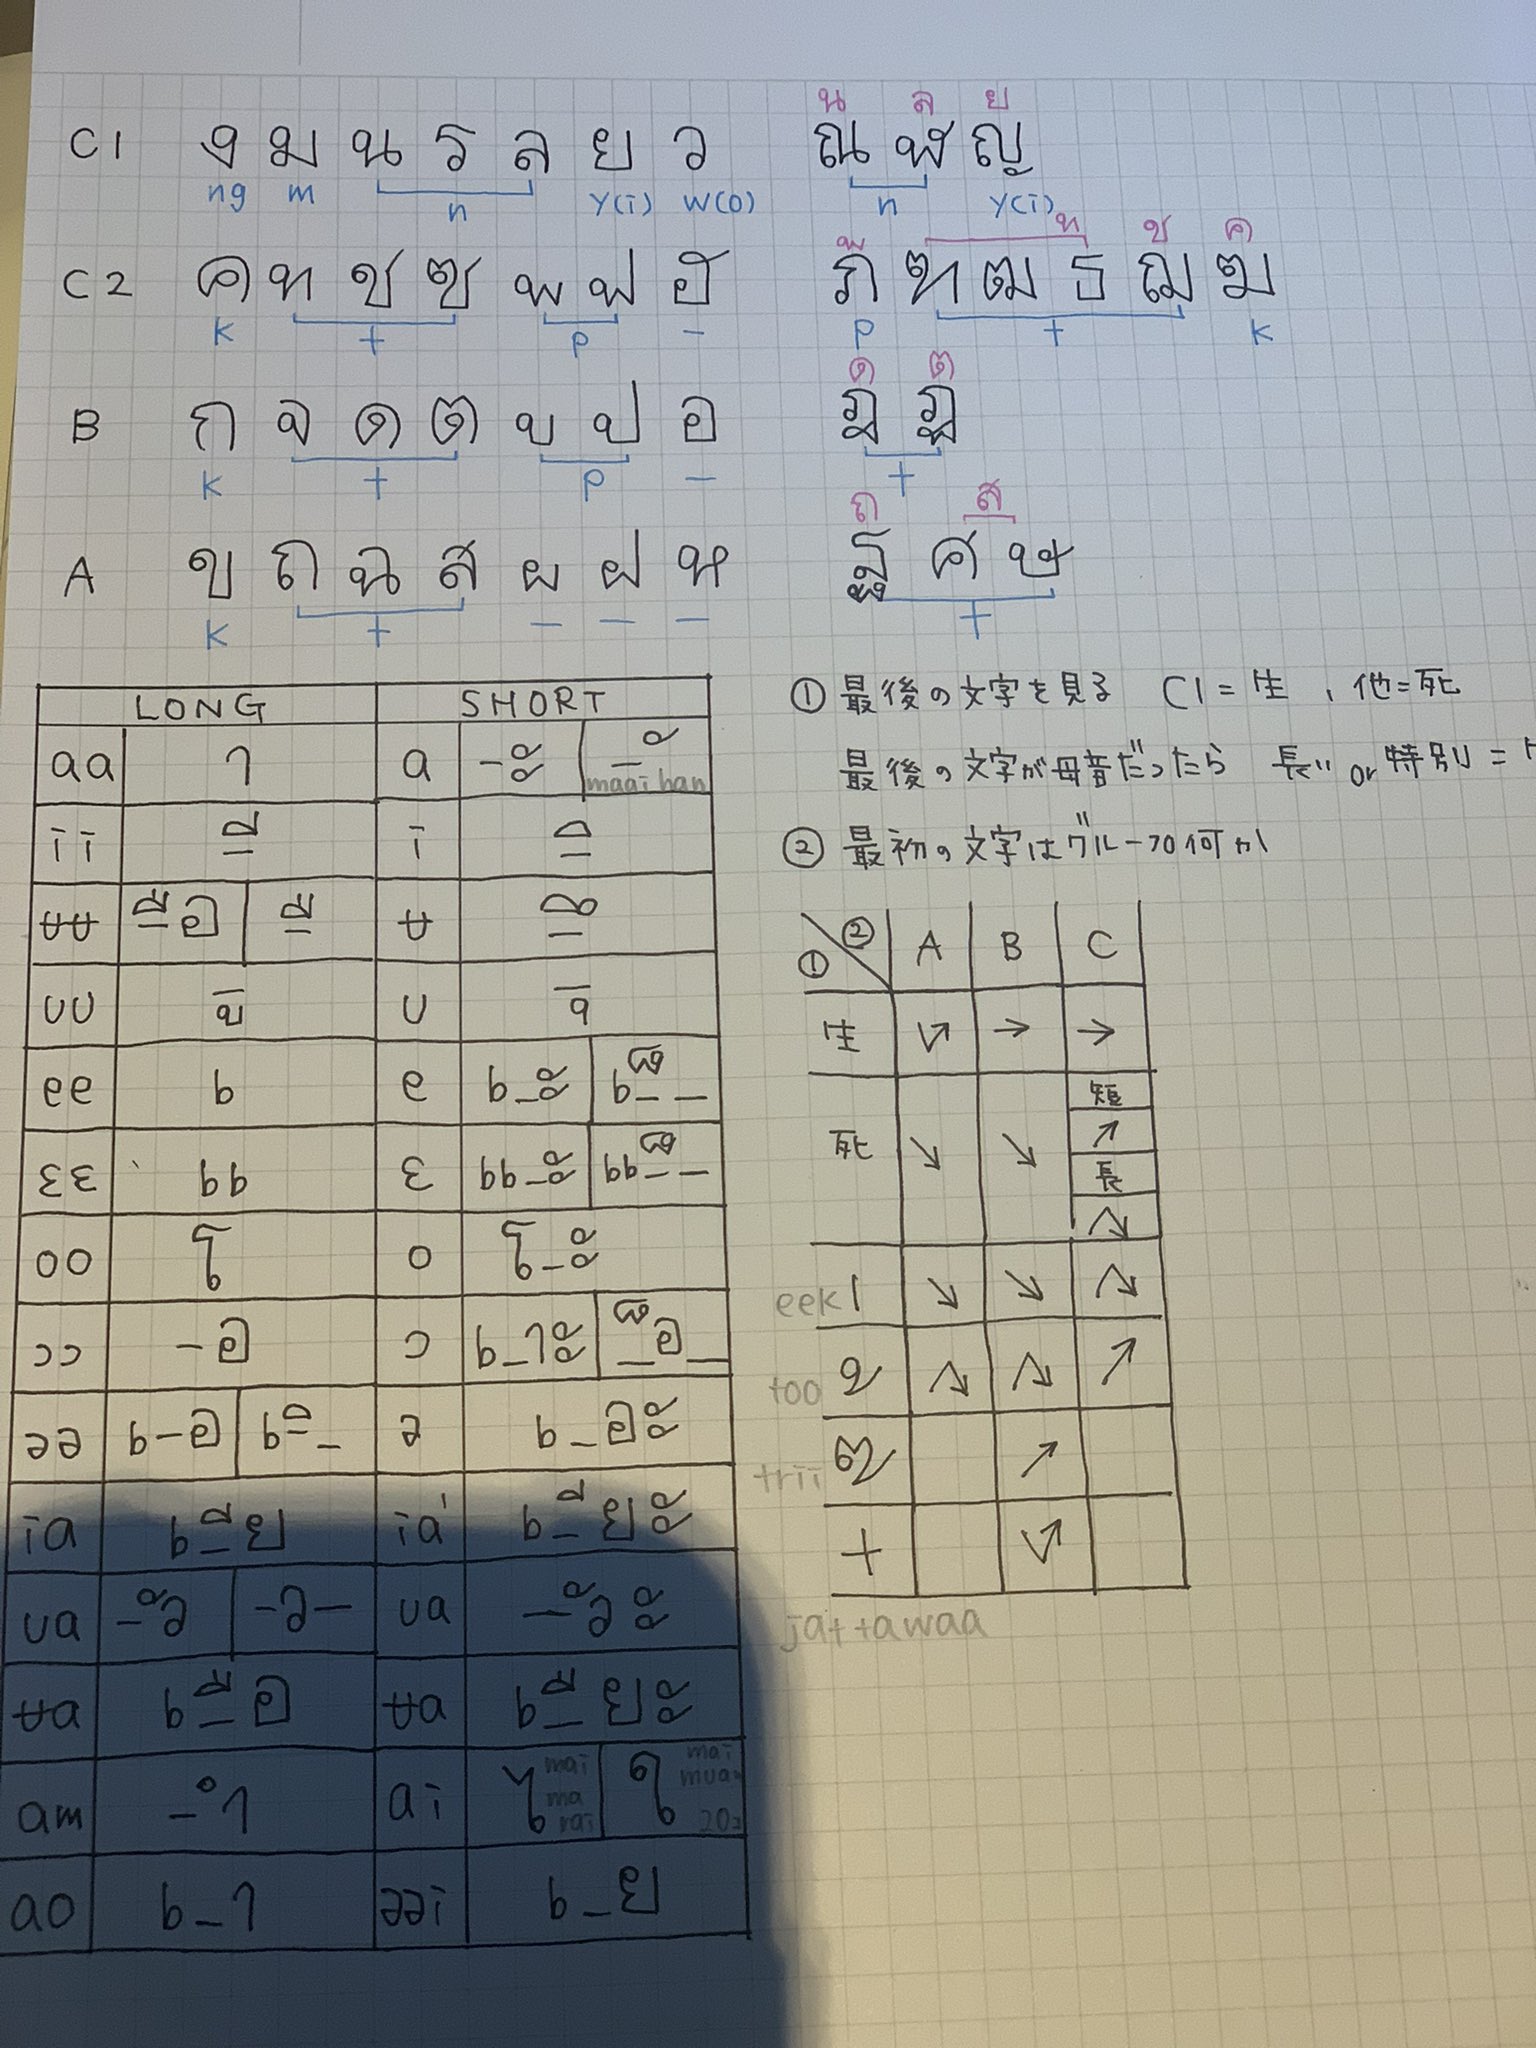 น ล ย
C1 ง ม น ร ล ย ว ณ ฬ ญ
ng m n y(i) w(o) n y(i)
พ ท ช ค
C2 ค ท ช ซ พ ฟ ฮ ภ ฑ ฒ ธ ฌ ฆ
k t p - p t k
ด ต
B ก จ ด ต บ ป อ ฎ ฏ
k t p - t
ถ ส
A ข ถ ฉ ส ผ ฝ ห ฐ ศ ษ
k t - - - t
LONG SHORT
aa า a -ะ -ั
maai han
ii -ี i -ิ
ʉʉ -ือ -ื ʉ -ึ
uu -ู u -ุ
ee เ e เ-ะ เ-็-
ɛɛ แ ɛ แ-ะ แ-็-
oo โ o โ-ะ
ɔɔ -อ ɔ เ-าะ -็อ-
əə เ-อ เ-ิ- ə เ-อะ
ia เ-ีย ia เ-ียะ
ua -ัว -ว- ua -ัวะ
ʉa เ-ือ ʉa เ-ืยะ
am -ำ ai ไ mai ma rai ใ mai
ao เ-า əəi เ-ย
① 最後の文字を見る C1=生、他=死
最後の文字が母音だったら 長い or 特別=
② 最初の文字はグループ何か
① ② A B C
生 ↘↗ → →
死 ↘ ↘ 短 ↗ 長 ↗↘
eek ่ ↘ ↘ ↗↘
too ้ ↗↘ ↗↘ ↗
trii ๊ ↗
+ ↘↗
jattawaa